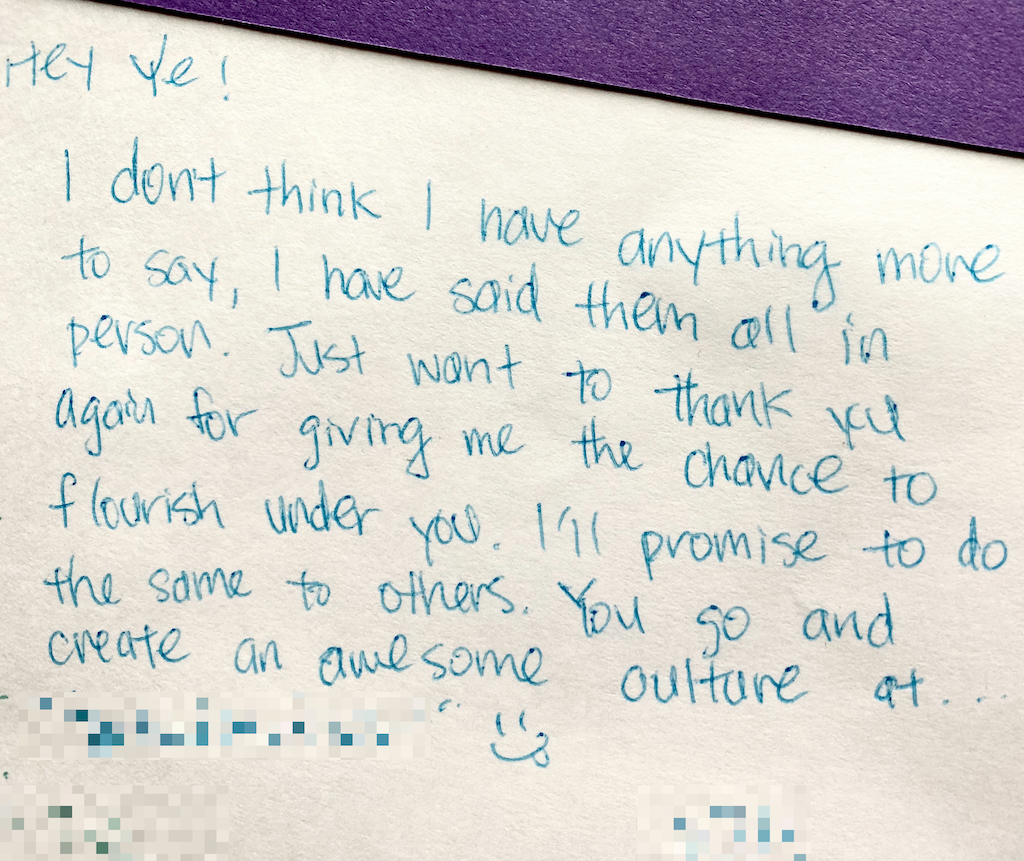 Hey Ye!
I don't think I have anything more
to say, I have said them all in
person. Just want to thank you
again for giving me the chance to
flourish under you. I'll promise to do
the same to others. You go and
create an awesome culture at...